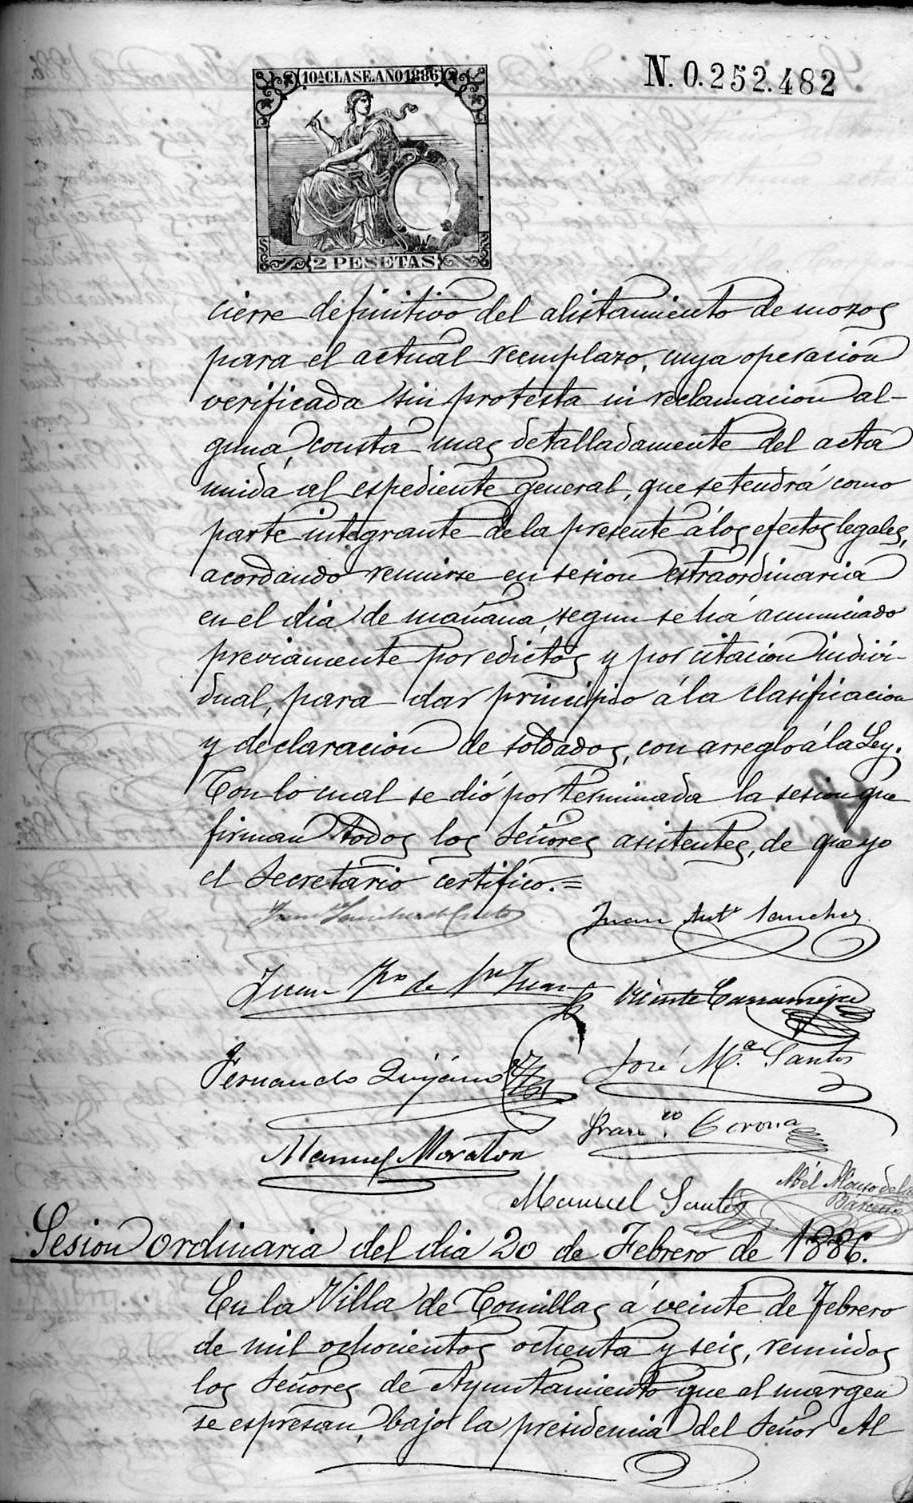 10ª CLASE. AÑO 1886
N. 0.252.482
2 PESETAS
cierre definitivo del alistamiento de mozos
para el actual reemplazo, cuya operacion
verificada sin protesta ni reclamacion al-
guna, consta mas detalladamente del acta
unida al espediente general, que se tendrá como
parte integrante de la presente á los efectos legales,
acordando reunirse en sesion estraordinaria
en el dia de mañana, segun se há anunciado
previamente por edictos y por citacion indivi-
dual, para dar principio á la clasificacion
y declaracion de soldados, con arreglo á la Ley.
Con lo cual se dió por terminada la sesion que
firman todos los Señores asistentes, de que yo
el Secretario certifico.=
Juan Antº Sanchez
Juan de Juan
Vicente
Fernando Quijano
José Mª Santos
Franco Corona
Manuel Moratón
Manuel Santos
Abél Alonso de la
Bárcena
Sesion ordinaria del dia 20 de Febrero de 1886.
En la Villa de Comillas á veinte de Febrero
de mil ochocientos ochenta y seis, reunidos
los Señores de Ayuntamiento que al margen
se espresan, bajo la presidencia del Señor Al